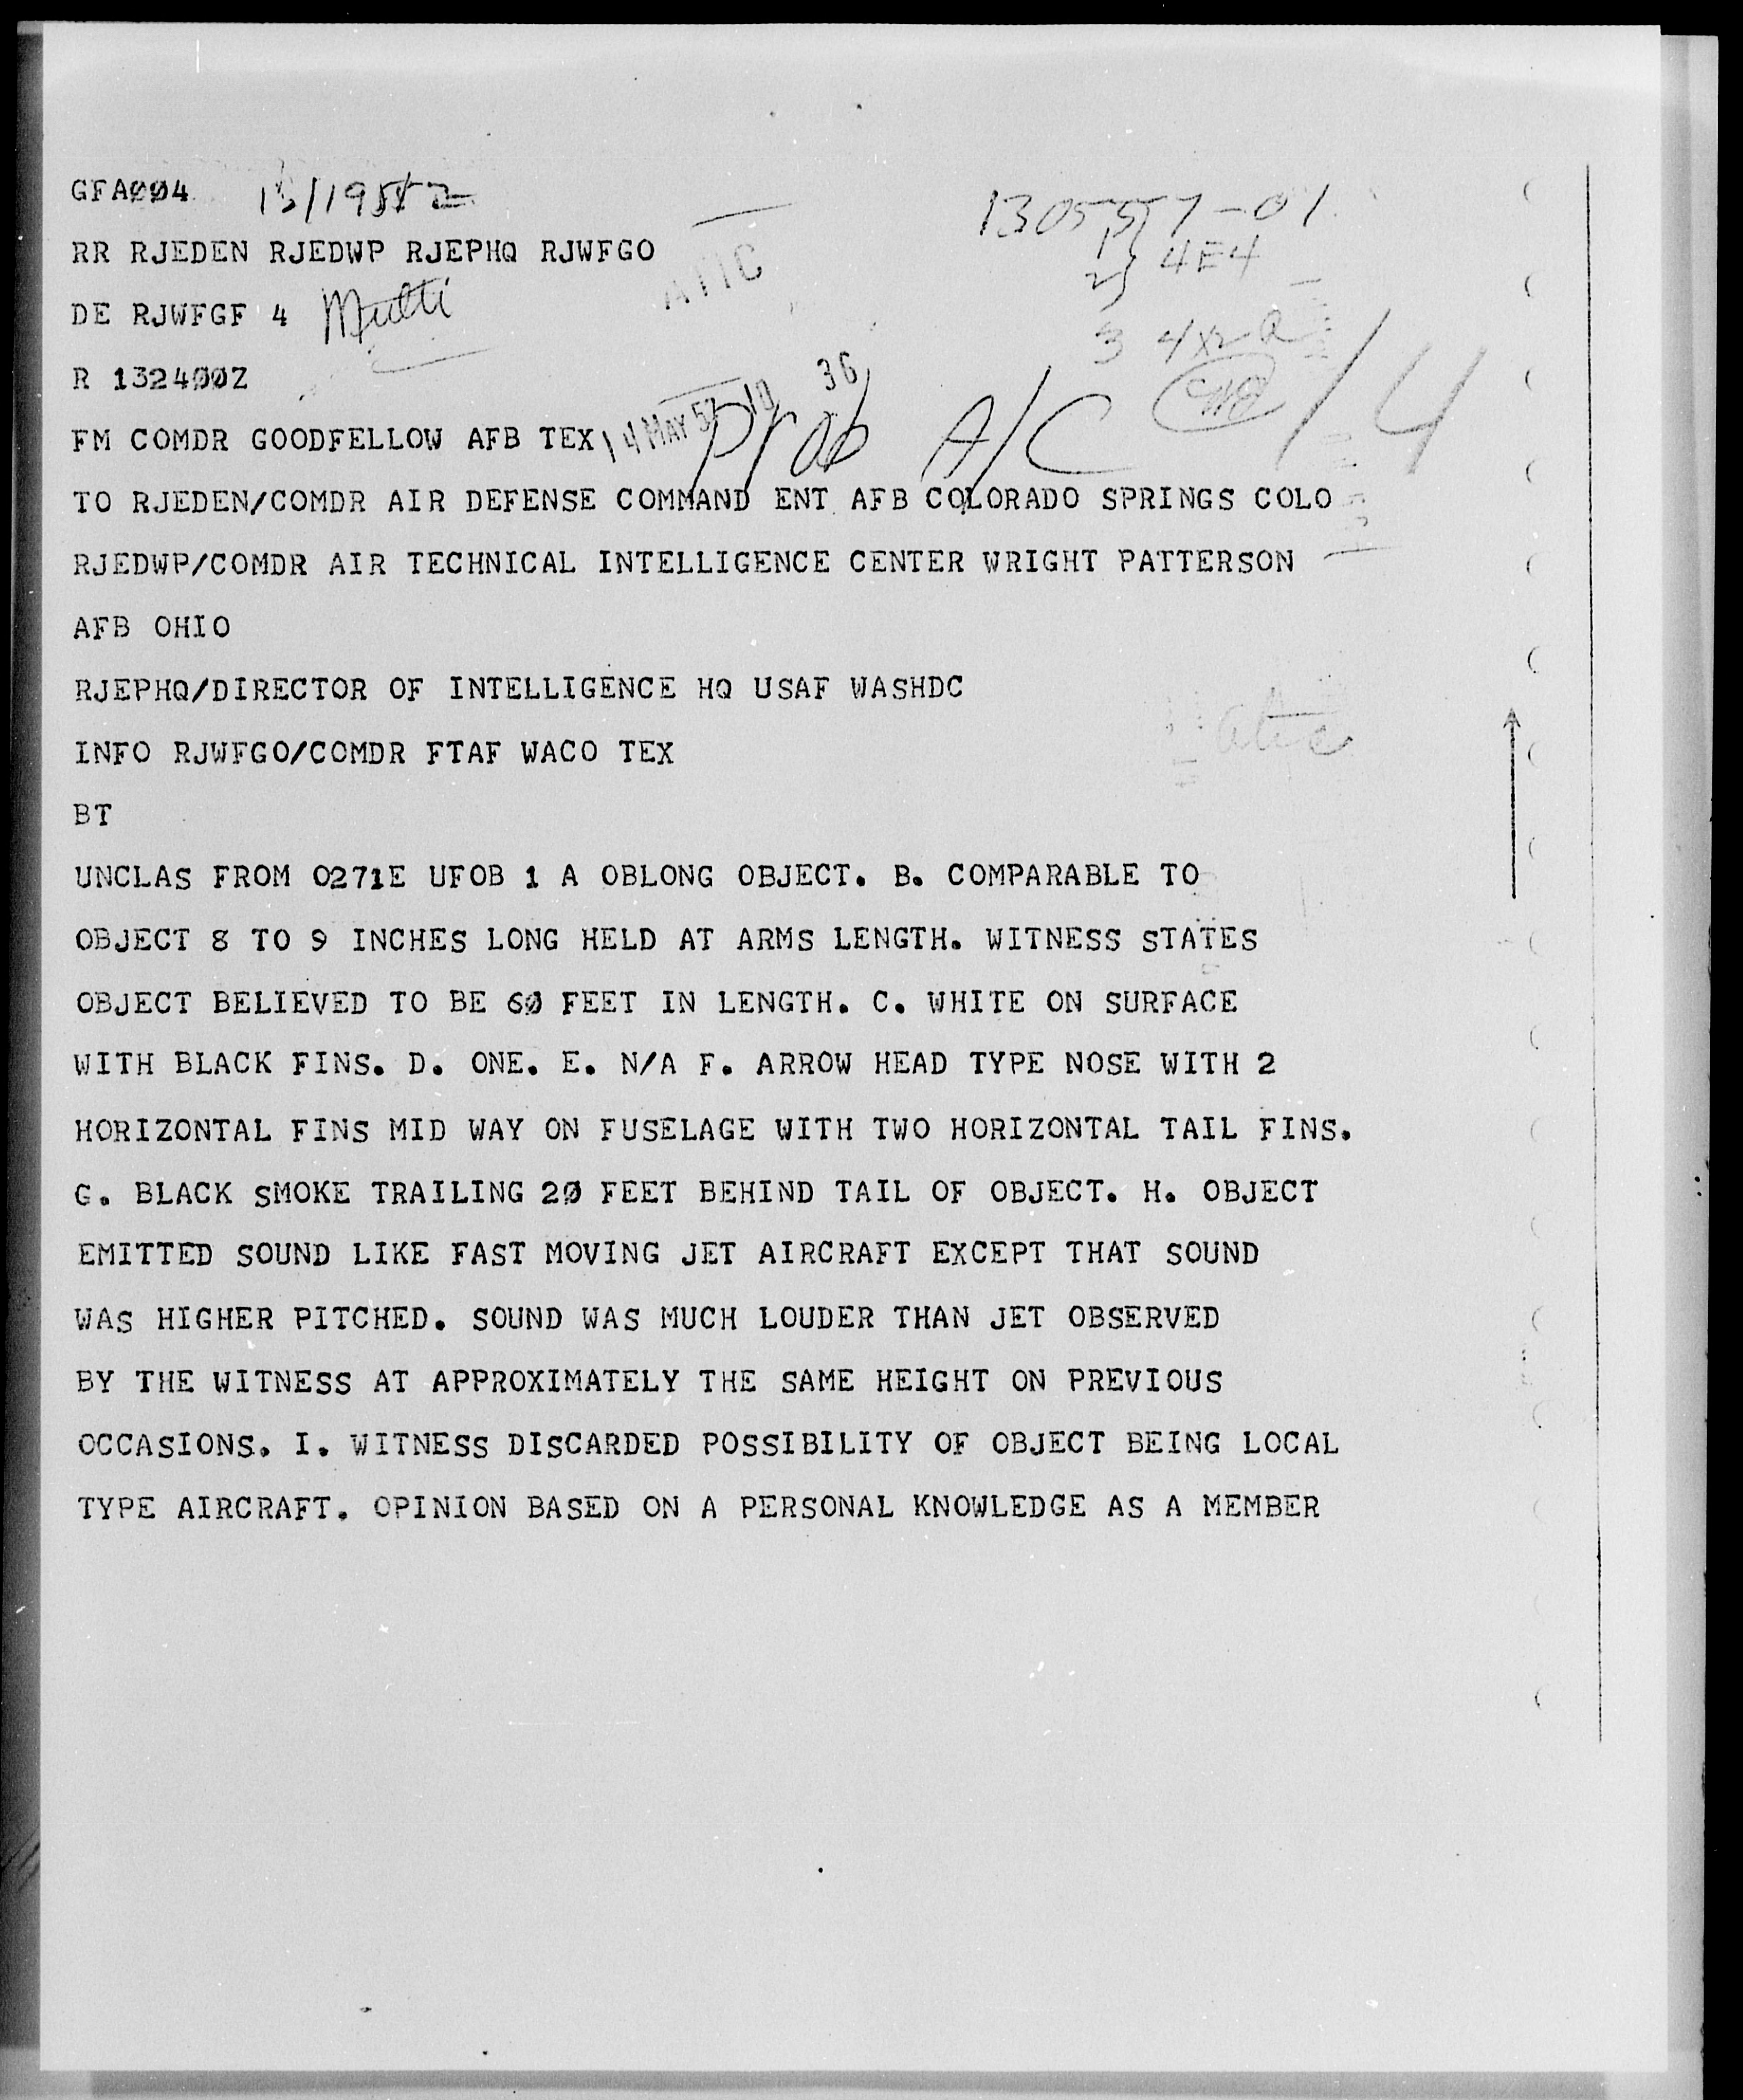 GFA004 13/1958Z
RR RJEDEN RJEDWP RJEPHQ RJWFGO
ATIC
1305557-01
4E4
DE RJWFGF 4 Multi
3 4X
R 132400Z
14 MAY 57 10 36
Prob A/C
FM COMDR GOODFELLOW AFB TEX
TO RJEDEN/COMDR AIR DEFENSE COMMAND ENT AFB COLORADO SPRINGS COLO
RJEDWP/COMDR AIR TECHNICAL INTELLIGENCE CENTER WRIGHT PATTERSON
AFB OHIO
RJEPHQ/DIRECTOR OF INTELLIGENCE HQ USAF WASHDC
INFO RJWFGO/COMDR FTAF WACO TEX
BT
UNCLAS FROM 0271E UFOB 1 A OBLONG OBJECT. B. COMPARABLE TO
OBJECT 8 TO 9 INCHES LONG HELD AT ARMS LENGTH. WITNESS STATES
OBJECT BELIEVED TO BE 60 FEET IN LENGTH. C. WHITE ON SURFACE
WITH BLACK FINS. D. ONE. E. N/A F. ARROW HEAD TYPE NOSE WITH 2
HORIZONTAL FINS MID WAY ON FUSELAGE WITH TWO HORIZONTAL TAIL FINS.
G. BLACK SMOKE TRAILING 20 FEET BEHIND TAIL OF OBJECT. H. OBJECT
EMITTED SOUND LIKE FAST MOVING JET AIRCRAFT EXCEPT THAT SOUND
WAS HIGHER PITCHED. SOUND WAS MUCH LOUDER THAN JET OBSERVED
BY THE WITNESS AT APPROXIMATELY THE SAME HEIGHT ON PREVIOUS
OCCASIONS. I. WITNESS DISCARDED POSSIBILITY OF OBJECT BEING LOCAL
TYPE AIRCRAFT. OPINION BASED ON A PERSONAL KNOWLEDGE AS A MEMBER